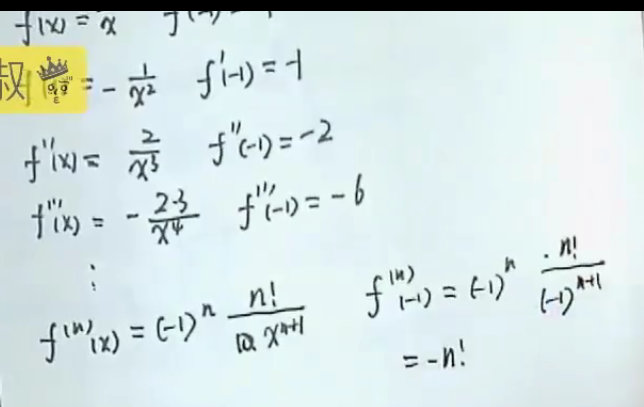 f(x) = 1/x f(-1) = -1
叔 = - 1/x² f'(-1) = -1
f''(x) = 2/x³ f''(-1) = -2
f'''(x) = - 2·3/x⁴ f'''(-1) = -6
⋮
f⁽ⁿ⁾(x) = (-1)ⁿ n!/xⁿ⁺¹ f⁽ⁿ⁾(-1) = (-1)ⁿ · n!/(-1)ⁿ⁺¹
= -n!